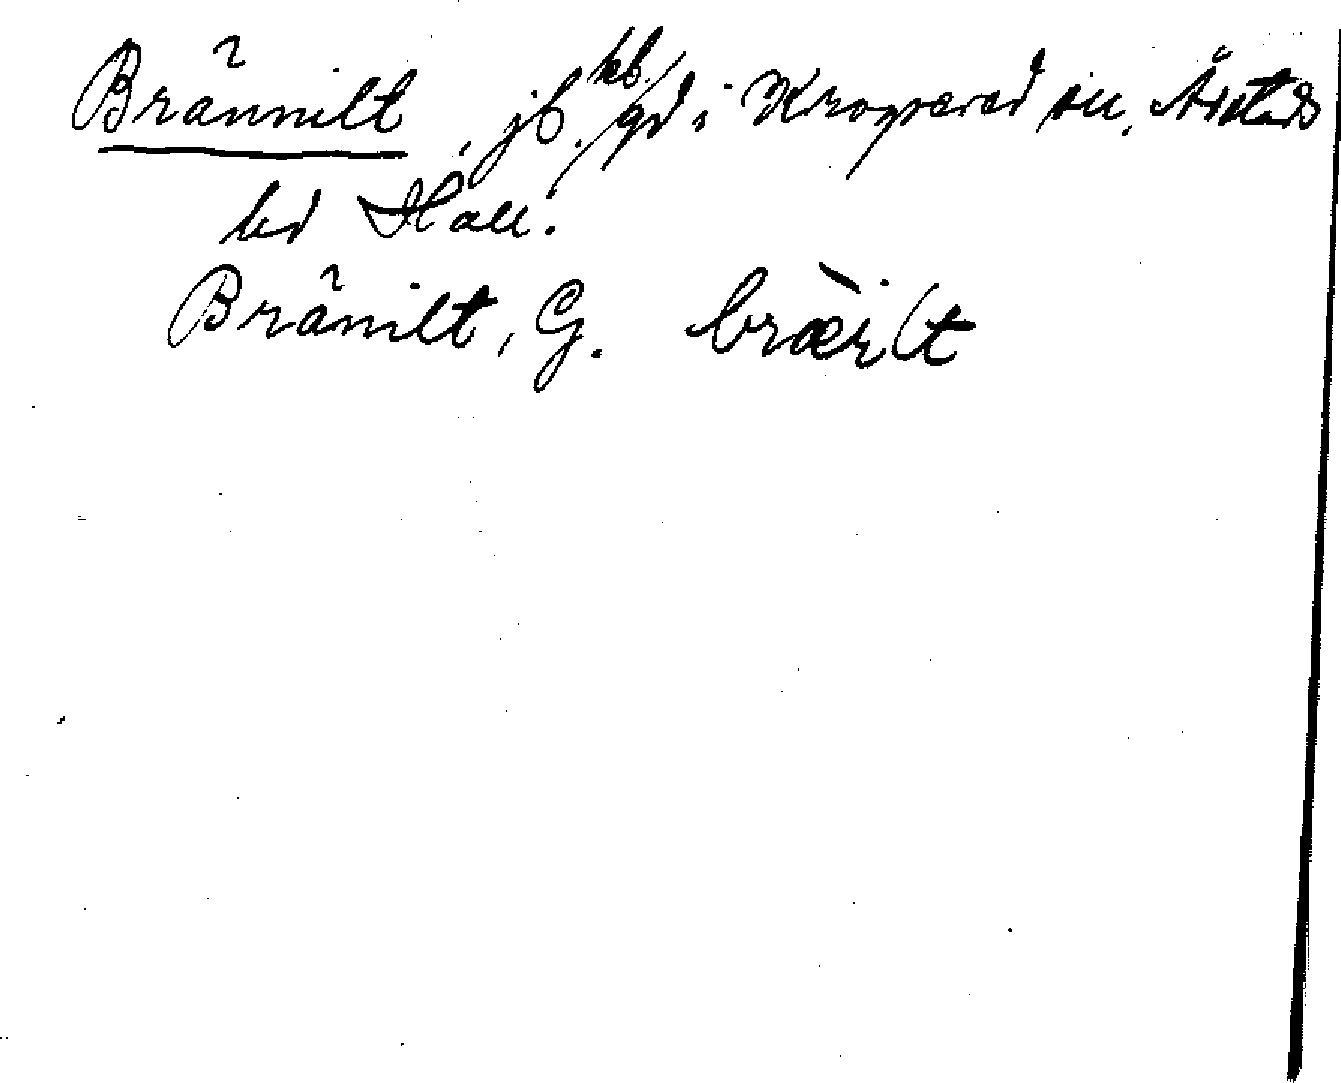 Brännilt, jb. kb./gd i Krogsered sn, Årstads
hd Hall.
Bränilt, G. bræ̀nilt